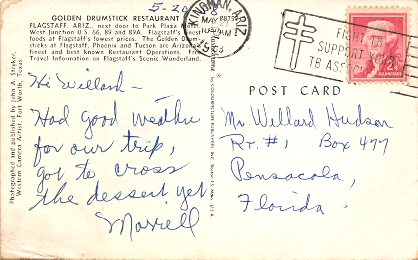 5-20
GOLDEN DRUMSTICK RESTAURANT
FLAGSTAFF, ARIZ., next door to Park Plaza
West Junction U.S. 66, 89 and 89A. Flagstaff's
foods at Flagstaff's lowest prices. The Golden Drum-
sticks at Flagstaff, Phoenix and Tucson are Arizona's
finest and best known Restaurant Operations.
Travel Information on Flagstaff's Scenic Wonderland.
Hi Willard-
Had good weather
for our trip,
got to cross
the dessert yet
Morrell
Photographed and published by John A. Stryker,
Western Camera Artist, Fort Worth, Texas
KINGMAN, ARIZ.
MAY
AM
FIGHT TB
SUPPORT YOUR
TB ASS
2¢
POST CARD
Mr Willard Hudson
Rt. #1, Box 477
Pensacola,
Florida.